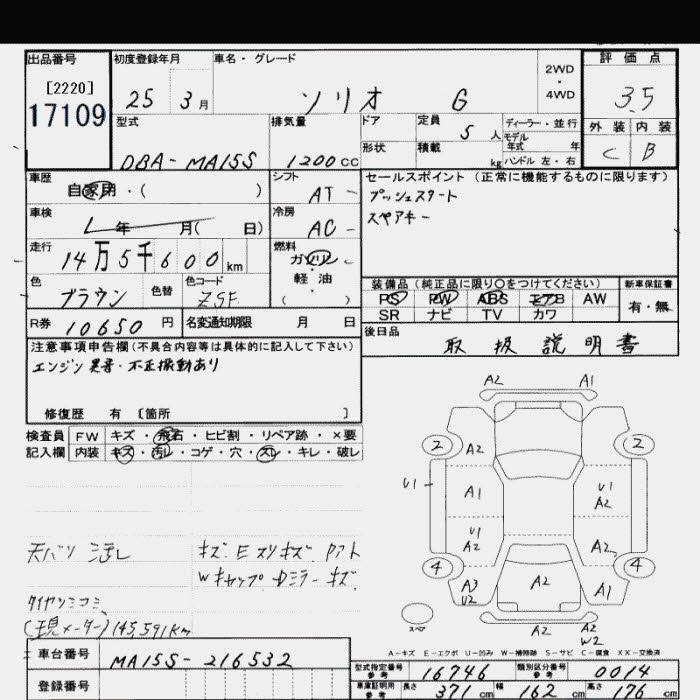 出品番号 初度登録年月 車名・グレード 評価点
[2220]
17109
25 3月 ソリオ G 2WD・4WD 3.5
型式 排気量 ドア 定員 5人 ディーラー・並行 外装 内装
モデル年式 年
形状 積載 kg ハンドル 左・右 C B
DBA-MA15S 1200cc
車歴 自家用・( ) シフト AT セールスポイント (正常に機能するものに限ります)
プッシュスタート
スペアキー
車検 年 月( 日) 冷房 AC
走行 14万5千600km 燃料 ガソリン・軽油 ( )
色 ブラウン 色替 色コード ZSF
装備品 (純正品に限り○をつけてください) 新車保証書
PS PW ABS エアB AW 有・無
SR ナビ TV カワ
R券 10650円 名変通知期限 月 日
後日品 取扱説明書
注意事項申告欄(不具合内容等は具体的に記入して下さい)
エンジン異音・不正振動あり
修復歴 有 [箇所 ]
検査員 FW キズ・飛石・ヒビ割・リペア跡・×要
記入欄 内装 キズ・汚れ・コゲ・穴・スレ・キレ・破レ
A2 A1
2 A2 2
U1 A1 U1 A2
U1 A2 A2
4 A3 U2 A2 A1 4
A2 A2 W2
天バリ 汚レ
キズ E スリキズ
Wキャップ Dミラーキズ
(現メーター)145,591km
A-キズ E-エクボ U-凹み W-補修跡 S-サビ C-腐食 XX-交換済
車台番号 MA15S-216532
登録番号
型式指定番号 参考 16746 類別区分番号 参考 0014
車庫証明用 参考 長さ 371cm 幅 162cm 高さ 176cm